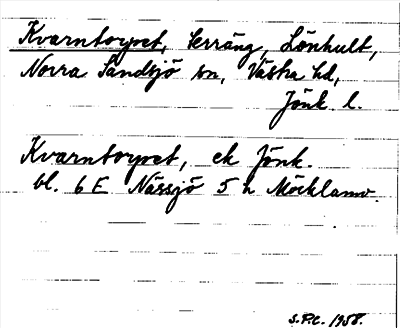 Kvarntorpet, terräng, Lönhult,
Norra Sandsjö sn, Västra hd,
Jönk l.
Kvarntorpet, ek Jönk.
bl. 6 E Nässjö 5 h Möcklamo.
S.P.C. 1958.